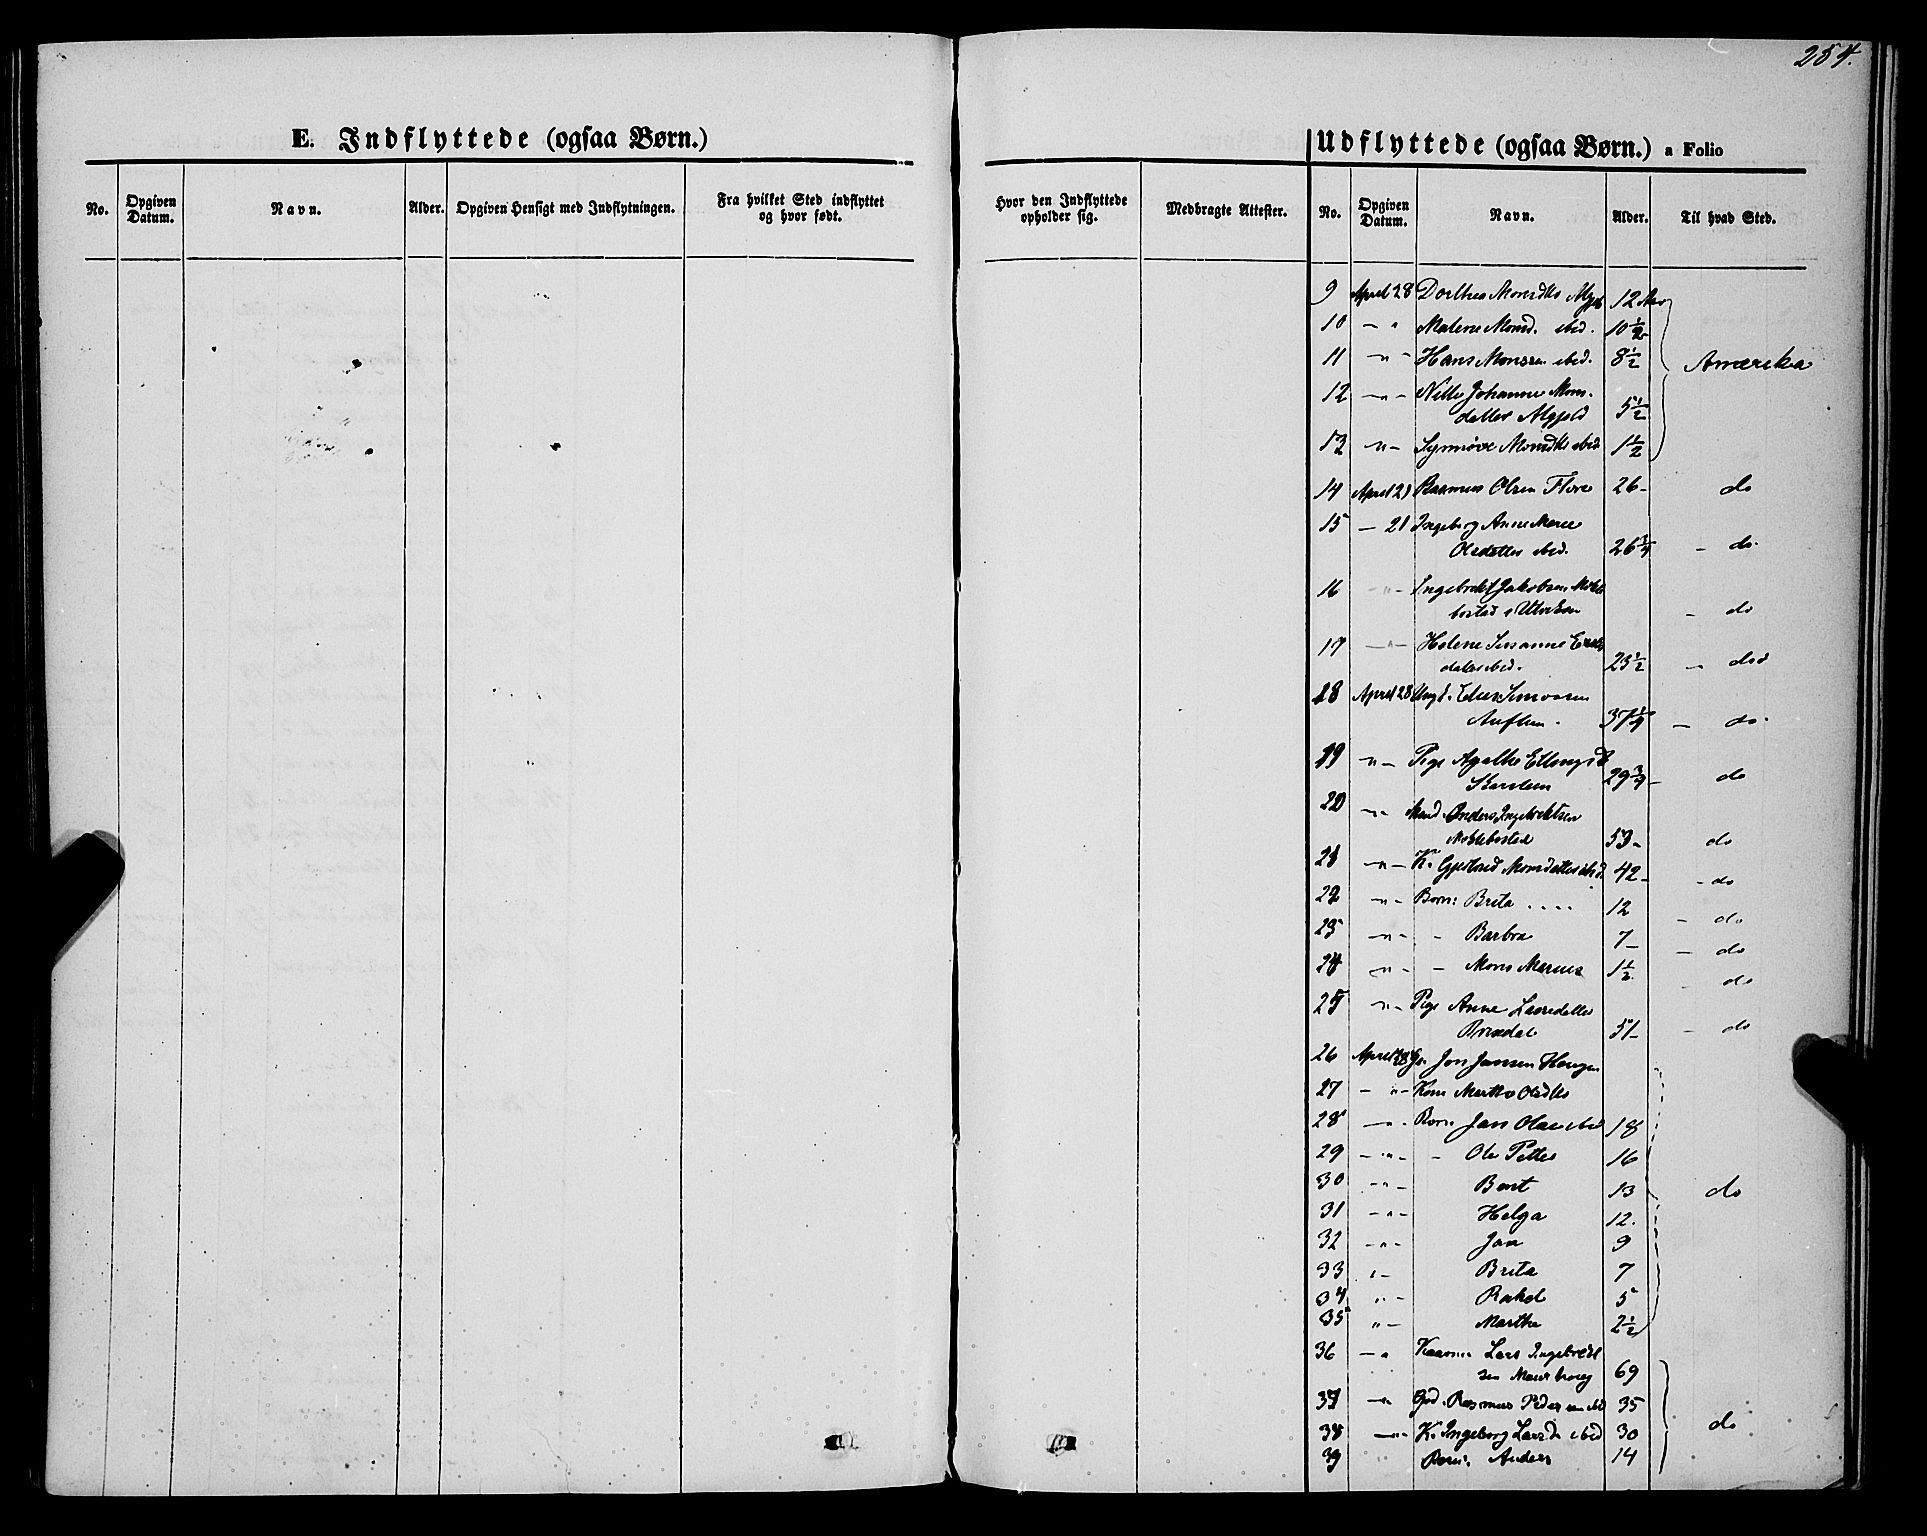 254.
E. Indflyttede (ogsaa Børn.)
Udflyttede (ogsaa Børn.) a Folio
No. Opgiven Datum. Navn. Alder. Opgiven Hensigt med Indflytningen. Fra hvilket Sted indflyttet og hvor født.
Hvor den Indflyttede opholder sig. Medbragte Attester. No. Opgiven Datum. Navn. Alder. Til hvad Sted.
9 April 28 Dorthea Monsdtr 12 Aar
10 — " Malene Monsd. ibid. 10 1/2
11 — " — Hans Monssen ibid. 8 1/2 Amerika
12 — " — Nille Johanne Mons-
datter 5 1/2
13 " — Synnøve Monsdtr ibid 1 1/2
14 April 21 Rasmus Olsen Flore 26 — do
15 — 21 Ingeborg Anne Marie
Olsdatter ibid. 26 3/4 — do.
16 — " — Ingebrekt Jakobsen
— do
17 — " — Helene Susanne
ibid. 23 1/2 — do
18 April 28 Ungk. Simonsen
37 1/4 — do.
19 " — Pige Agathe Ellingsd
29 3/4 — do
20 — " Mand. Anders Ingebrektsen
Moldebostad 53 — do
21 — " — K. Gjertrud Monsdatter ibid 42 — do
22 — " — Børn: Brita .... 12 — do
23 — " — - Barbra 7 — do
24 — " — - Mons Marius 1 1/2 — do
25 — " — Pige Anne Larsdatter
51 — do
26 April 28 Jon Jansen Haugen
27 — " — Kone Marthe Olsdtr
28 — " . Børn. Jan Olai ibid 18
29 — " — - Ole Petter 16
30 — " — Berit 13 do
31 — " — Helga 12.
32 — " — Jan 9
33 " — Brita 7
34 " — Rakel 5
35 " — Marthe 2 1/2
36 — " Lars Ingebrekt
sen 69
37 — " Rasmus Pedersen ibd 35
38 — " — K. Ingeborg Larsdr ibid 30 do
39 " Børn: Anders 14